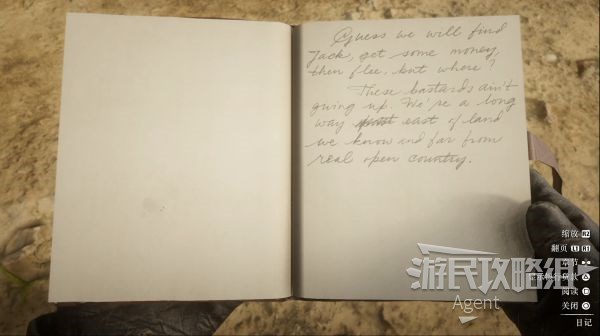 Guess we will find
Jack, get some money,
then flee, but where?
These bastards ain't
giving up. We're a long
way east of land
we know and far from
real open country.
缩放 R2
翻页 L1 R1
章节
阅读
关闭
日记
游民攻略组
Agent